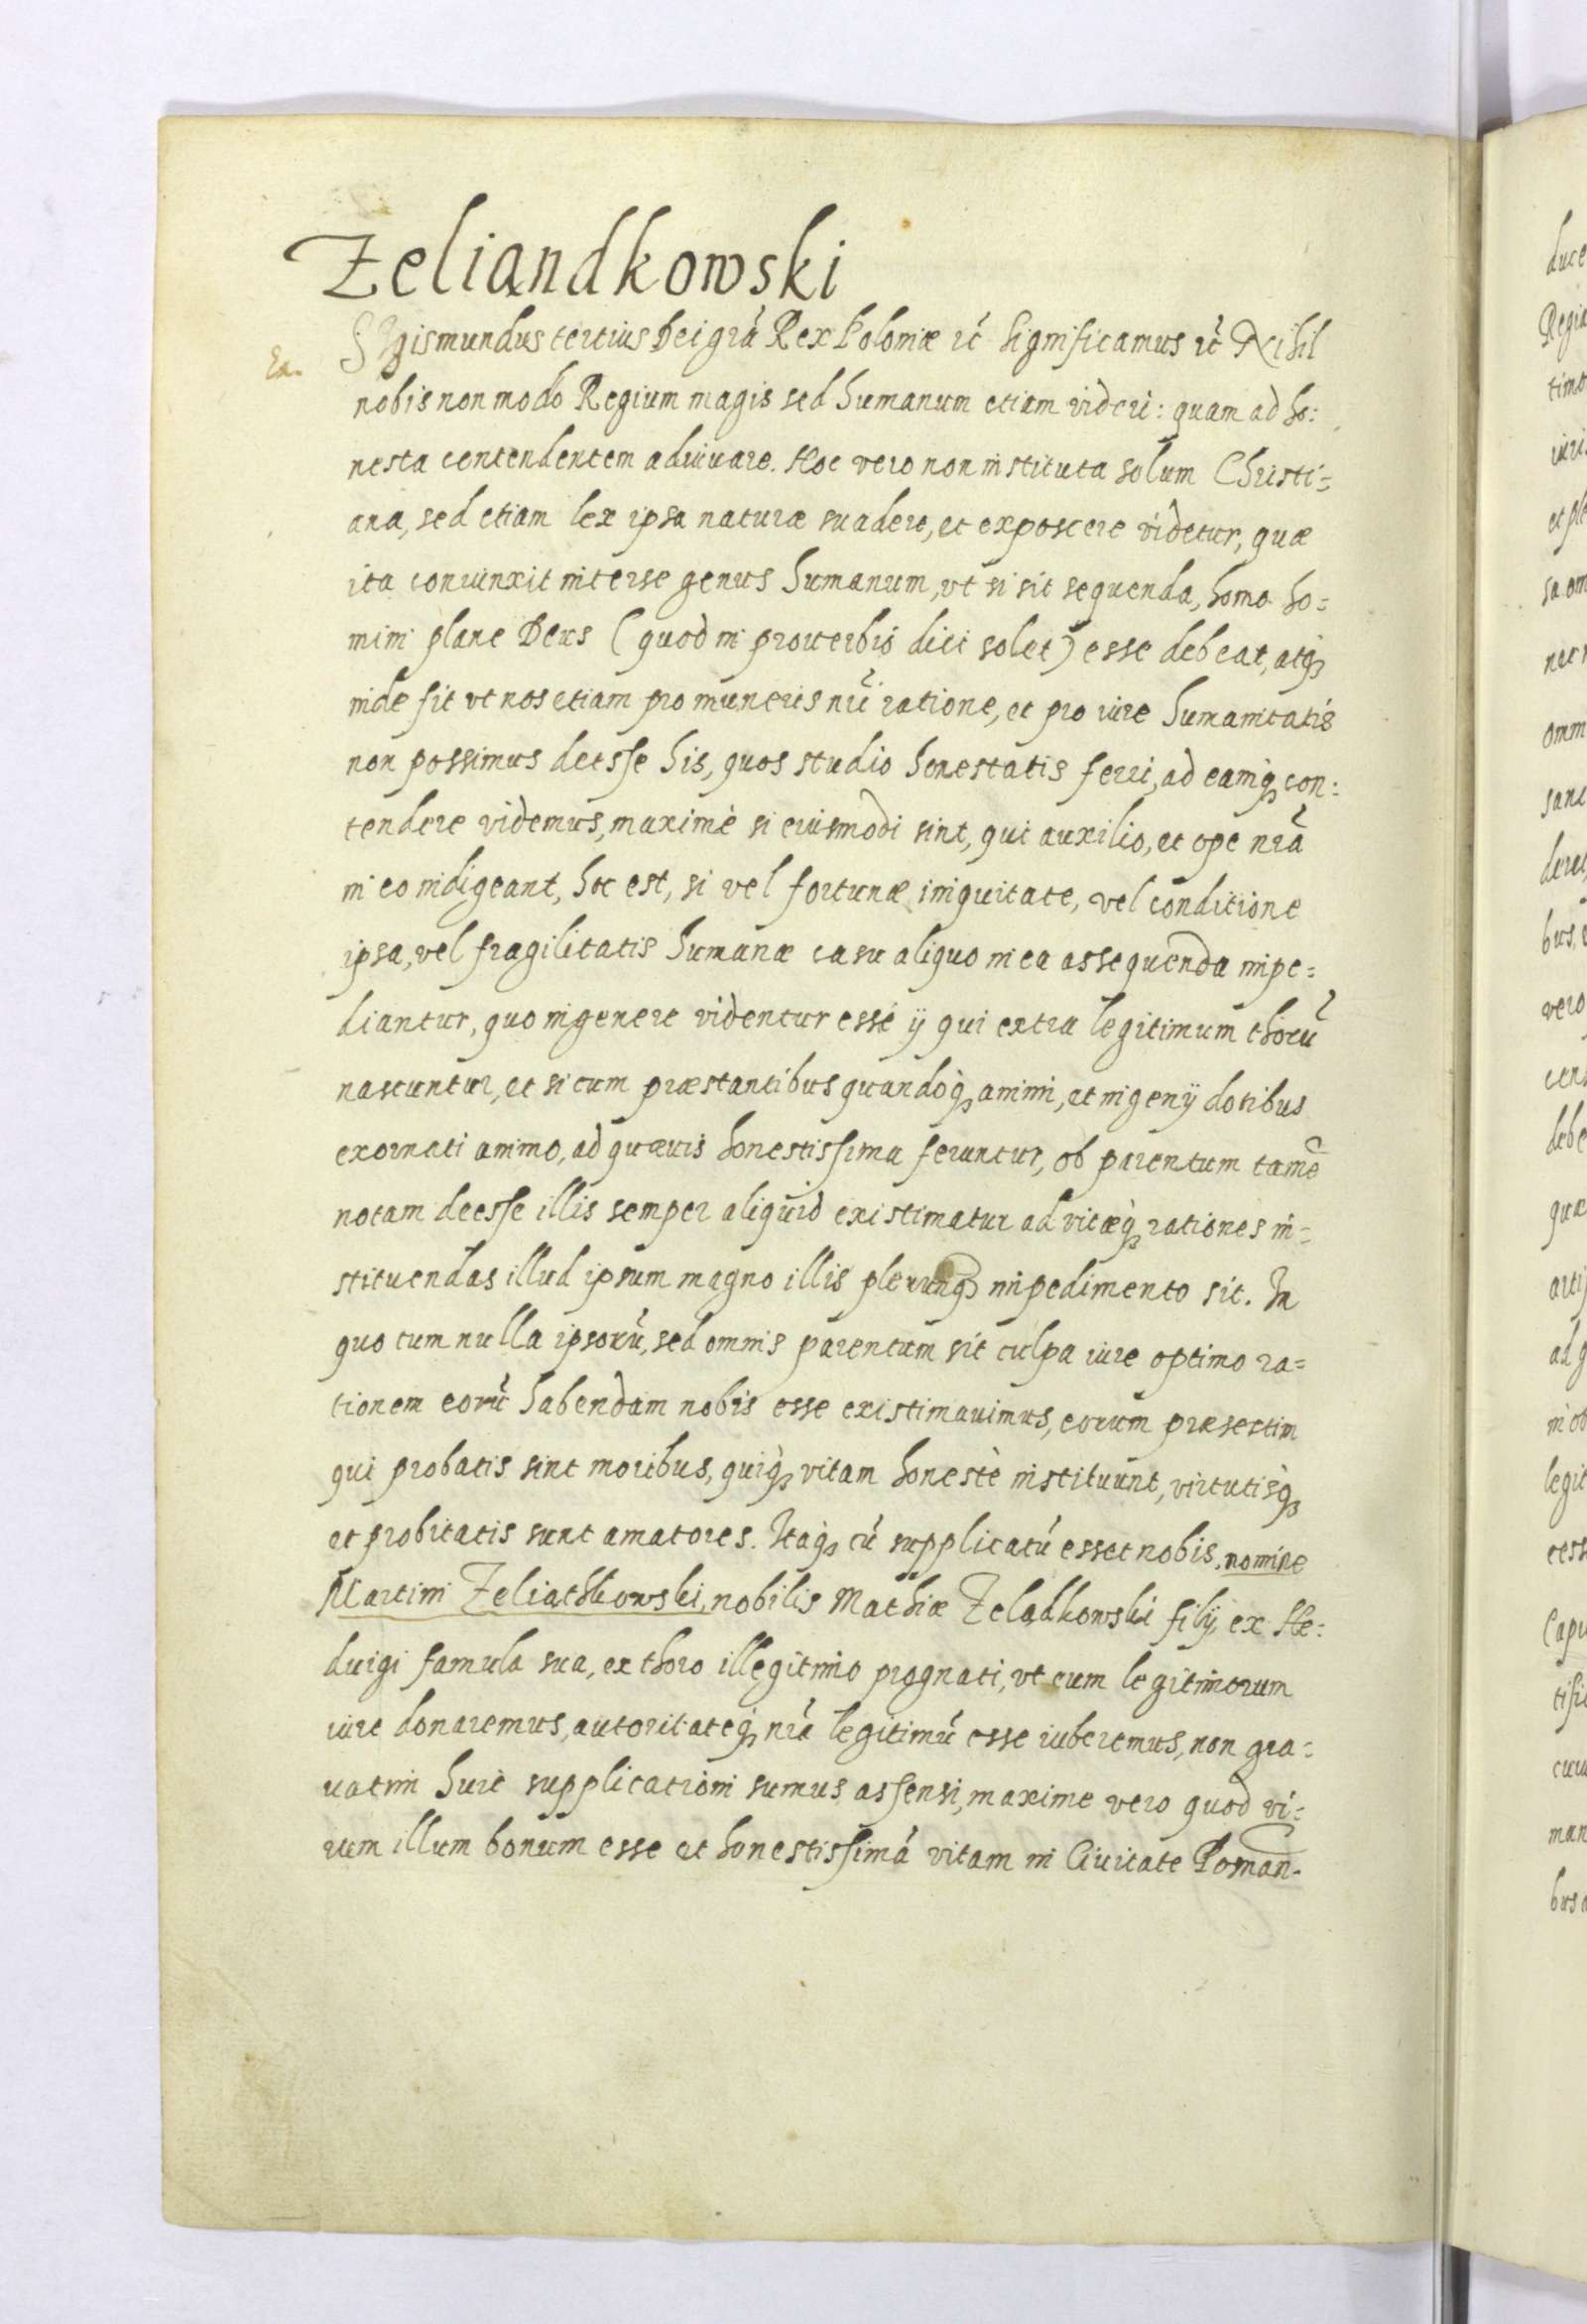 Zeliandkowski
Sigismundus tertius Dei grã Rex Poloniæ ꝛc̃ Significamus ꝛc̃ Nihil
nobis non modo Regium magis sed humanum etiam videri: quam ad ho:
nesta contendentem adiuuare. Hoc vero non instituta solum Christi=
ana, sed etiam lex ipsa naturæ suadere, et exposcere videtur, quæ
ita coniunxit inter se genus humanum, vt si sit sequenda, homo ho=
mini plane Deus (quod in prouerbio dici solet) esse debeat, atqꝫ
inde fit vt nos etiam pro muneris nri̇̃ ratione, et pro iure humanitatis
non possimus deesse his, quos studio honestatis ferri, ad eamqꝫ con:
tendere videmus, maximè si eiusmodi sint, qui auxilio, et ope nrã
in eo indigeant, hoc est, si vel fortunæ iniquitate, vel conditione
ipsa, vel fragilitatis humanæ casu aliquo in ea assequenda impe=
diantur, quo in genere videntur esse ij qui extra legitimum thorũ
nascuntur, et si cum præstantibus quandoqꝫ animi, et ingenij dotibus
exornati animo, ad quæuis honestissima feruntur, ob parentum tamẽ
notam deesse illis semper aliquid existimatur ad vitæqꝫ rationes in=
stituendas illud ipsum magno illis plerunqꝫ impedimento sit. In
quo cum nulla ipsorũ, sed omnis parentum sit culpa iure optimo ra=
tionem eorũ habendam nobis esse existimauimus, eorum præsertim
qui probatis sint moribus, quiqꝫ vitam honestè instituunt, virtutisqꝫ
et probitatis sunt amatores. Itaqꝫ cũ supplicatũ esset nobis, nomine
Martini Zeliathkowski, nobilis Mathiæ Zeladkowski filij, ex He:
duigi famula sua, ex thoro illegitimo prognati, vt eum legitimorum
iure donaremus, autoritateqꝫ nrã legitimũ esse iuberemus, non gra:
uatim huic supplicationi sumus assensi, maxime vero quod vi:
rum illum bonum esse et honestissimã vitam in Ciuitate Posnan.